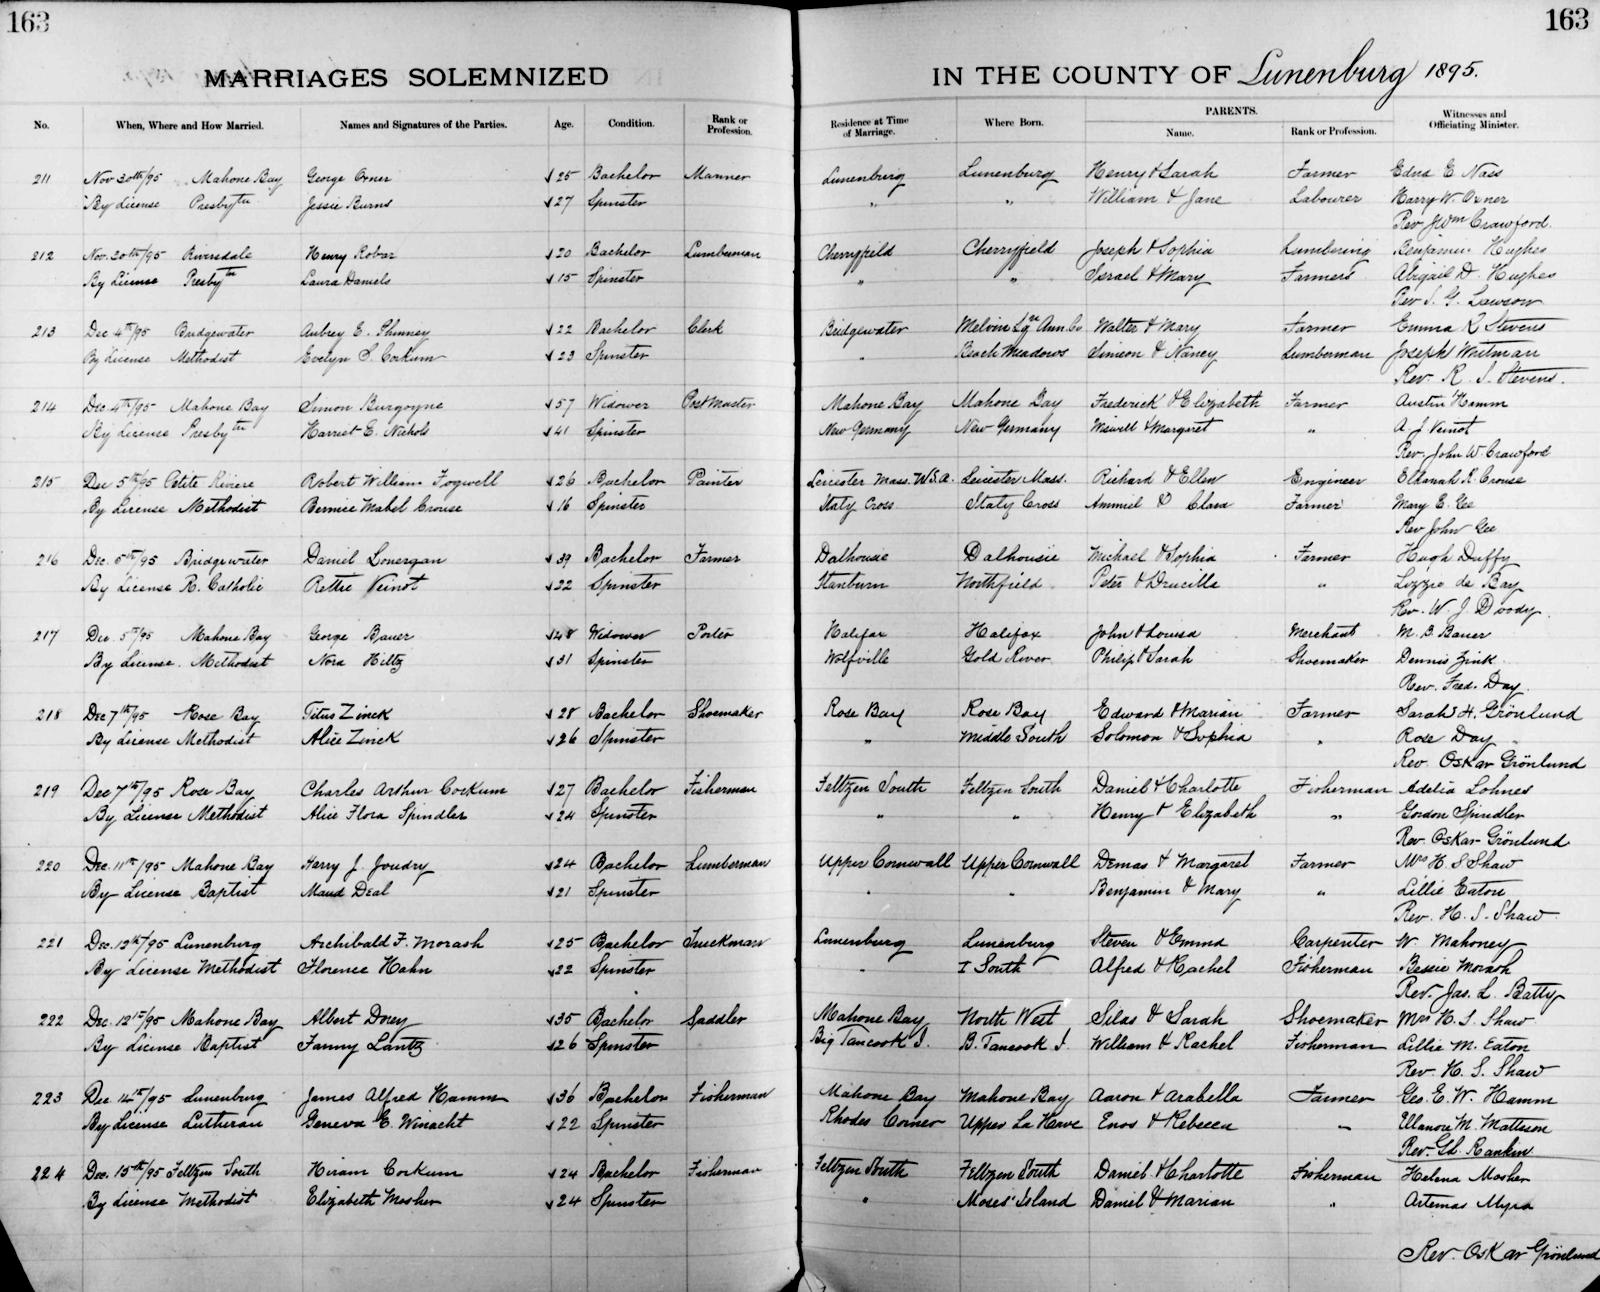 163
163
MARRIAGES SOLEMNIZED IN THE COUNTY OF Lunenburg 1895.
No. When, Where and How Married. Names and Signatures of the Parties. Age. Condition. Rank or Profession. Residence at Time of Marriage. Where Born. PARENTS. Name. Rank or Profession. Witnesses and Officiating Minister.
211 Nov 30th/95 Mahone Bay George Orner 25 Bachelor Mariner Lunenburg Lunenburg Henry & Sarah Farmer Edna E Nass
By License Presbytn Jessie Burns 27 Spinster " " William & Jane Labourer Harry W. Orner
Rev. J Wm Crawford.
212 Nov. 20th/95 Riversdale Henry Robar 20 Bachelor Lumberman Cherryfield Cherryfield Joseph & Sophia Lumbering Benjamin Hughes
By License Presbytn Laura Daniels 15 Spinster " " Israel & Mary Farmers Abigail D. Hughes
Rev S. G. Lawson
213 Dec 4th/95 Bridgewater Aubrey E. Phinney 22 Bachelor Clerk Bridgewater Melvin Sqre Ann. Co Walter & Mary Farmer Emma R Stevens
By License Methodist Evelyn S Corkum 23 Spinster " Beach Meadows Simeon & Nancy Lumberman Joseph Whitman
Rev. R. S. Stevens.
214 Dec. 4th/95 Mahone Bay Simon Burgoyne 57 Widower Post Master Mahone Bay Mahone Bay Frederick & Elizabeth Farmer Austin Hamm
By License Presbytn Harriet E. Nichols 41 Spinster New Germany New Germany & Margaret " A. J Veinot
Rev. John W. Crawford
215 Dec 5th/95 Petite Riviere Robert William Fogwell 26 Bachelor Painter Leicester Mass. U.S.A. Leicester Mass. Richard & Ellen Engineer Elkanah R. Crouse
By License Methodist Bernice Mabel Crouse 16 Spinster Italy Cross Italy Cross Ammiel & Clara Farmer Mary E. Gee
Rev John Gee
216 Dec. 5th/95 Bridgewater Daniel Lonergan 39 Bachelor Farmer Dalhousie Dalhousie Michael & Sophia Farmer Hugh Duffy
By License R. Catholic Rettie Veinot 22 Spinster Stanburn Northfield Peter & Drucilla " Lizzie de Bay
Rev. W. J. Doody.
217 Dec. 5th/95 Mahone Bay George Bauer 48 Widower Porter Halifax Halifax John & Louisa Merchant M. B. Bauer
By License. Methodist Nora Hiltz 31 Spinster Wolfville Gold River Philip & Sarah Shoemaker Dennis Zink
Rev. Fred. Day.
218 Dec 7th/95 Rose Bay Titus Zinck 28 Bachelor Shoemaker Rose Bay Rose Bay Edward & Marian Farmer Sarah H. Grönlund
By License Methodist Alice Zinck 26 Spinster " Middle South Solomon & Sophia " Rose Day
Rev. Oskar Grönlund
219 Dec 7th/95 Rose Bay Charles Arthur Corkum 27 Bachelor Fisherman Feltzen South Feltzen South Daniel & Charlotte Fisherman Adelia Lohnes
By License Methodist Alice Flora Spindler 24 Spinster " " Henry & Elizabeth " Gordon Spindler
Rev. Oskar Grönlund
220 Dec. 11th/95 Mahone Bay Harry J. Joudry 24 Bachelor Lumberman Upper Cornwall Upper Cornwall Demas & Margaret Farmer Mrs H. S Shaw
By License Baptist Maud Deal 21 Spinster " " Benjamin & Mary " Lillie Eaton
Rev. H. S. Shaw
221 Dec. 12th/95 Lunenburg Archibald F. Morash 25 Bachelor Truckman Lunenburg Lunenburg Steven & Emma Carpenter W. Mahoney
By License Methodist Florence Hahn 22 Spinster " I South Alfred & Rachel Fisherman Bessie Morash
Rev. Jas. L. Batty
222 Dec. 12th/95 Mahone Bay Albert Dorey 35 Bachelor Saddler Mahone Bay North West Silas & Sarah Shoemaker Mrs H. S. Shaw
By License Baptist Fanny Lantz 26 Spinster Big Tancook I. B. Tancook I. William & Rachel Fisherman Lillie M. Eaton
Rev. H. S. Shaw
223 Dec 14th/95 Lunenburg James Alfred Hamm 36 Bachelor Fisherman Mahone Bay Mahone Bay Aaron & Arabella Farmer Geo. E. W. Hamm
By License Lutheran Geneva E. Winacht 22 Spinster Rhodes Corner Upper La Have Enos & Rebecca " Elanore M. Matteson
Rev. Rankin
224 Dec. 15th/95 Feltzen South Hiram Corkum 24 Bachelor Fisherman Feltzen South Feltzen South Daniel & Charlotte Fisherman Helena Mosher
By License Methodist Elizabeth Mosher 24 Spinster " Moses' Island Daniel & Marian " Artemas Myra
Rev. Oskar Grönlund